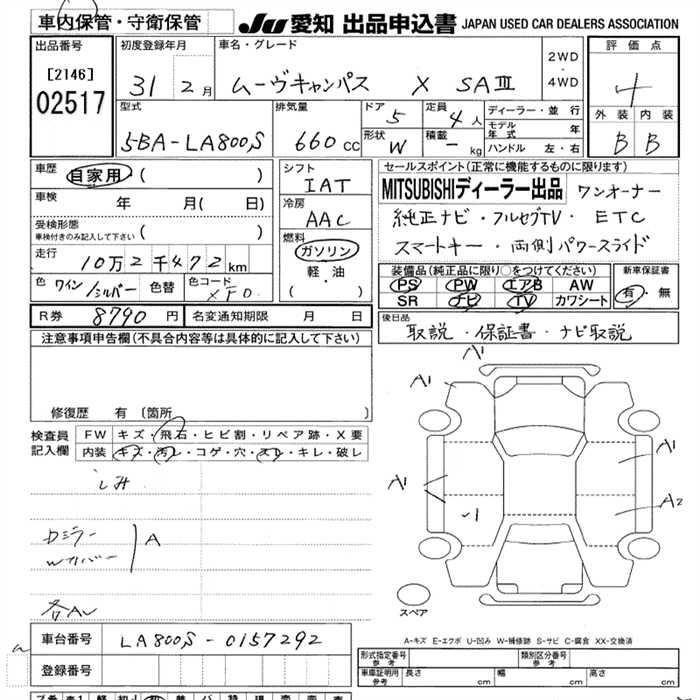 車内保管・守衛保管
JU 愛知 出品申込書 JAPAN USED CAR DEALERS ASSOCIATION
出品番号
[2146]
02517
初度登録年月
31 2月
車名・グレード
ムーヴキャンバス X SAⅢ
2WD
・
4WD
評価点
4
外装 内装
B B
型式
5BA-LA800S
排気量
660 cc
ドア 5
形状 W
定員 4人
積載 - kg
ディーラー・並行
モデル年式 年
ハンドル 左・右
車歴
自家用 ( )
車検
年 月( 日)
受検形態
車検付きのみ記入して下さい ( )
走行
10万2千472km
色 ワイン/シルバー 色替 色コード XF0
シフト
IAT
冷房
AAC
燃料
ガソリン
軽・油
( )
セールスポイント(正常に機能するものに限ります)
MITSUBISHIディーラー出品 ワンオーナー
純正ナビ・フルセグTV・ETC
スマートキー・両側パワースライド
装備品(純正品に限り○をつけてください)
PS PW エアB AW
SR ナビ TV カワシート
新車保証書
有・無
R券 8790円 名変通知期限 月 日
後日品
取説・保証書・ナビ取説
注意事項申告欄(不具合内容等は具体的に記入して下さい)
修復歴 有(箇所 )
検査員
記入欄
FW キズ・飛石・ヒビ割・リペア跡・X要
内装 キズ・汚レ・コゲ・穴・スレ・キレ・破レ
シミ
Dミラー
Wカバー
A
各AU
A1
A1
A1
A1
A2
✓1
スペア
A-キズ E-エクボ U-凹み W-補修跡 S-サビ C-腐食 XX-交換済
車台番号 LA800S-0157292
登録番号
形式指定番号
参考
類別区分番号
参考
車庫証明用
参考
長さ cm 幅 cm 高さ cm